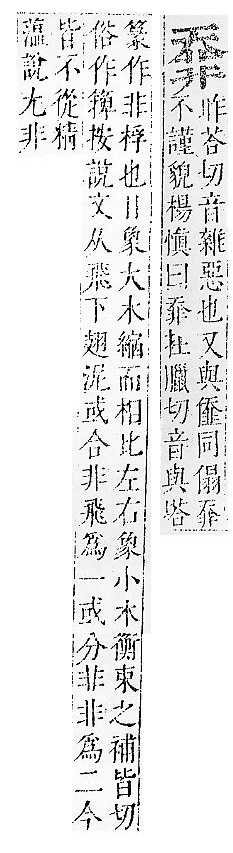 昨荅切音雜惡也又與同傝
不謹貌楊愼曰杜臘切音與塔
篆作桴也象大木縮而相比左右象小木衡束之補皆切
俗作簰按說文从飛下翅泥或合非飛爲一或分非爲二今
皆不從精
薀說尤非